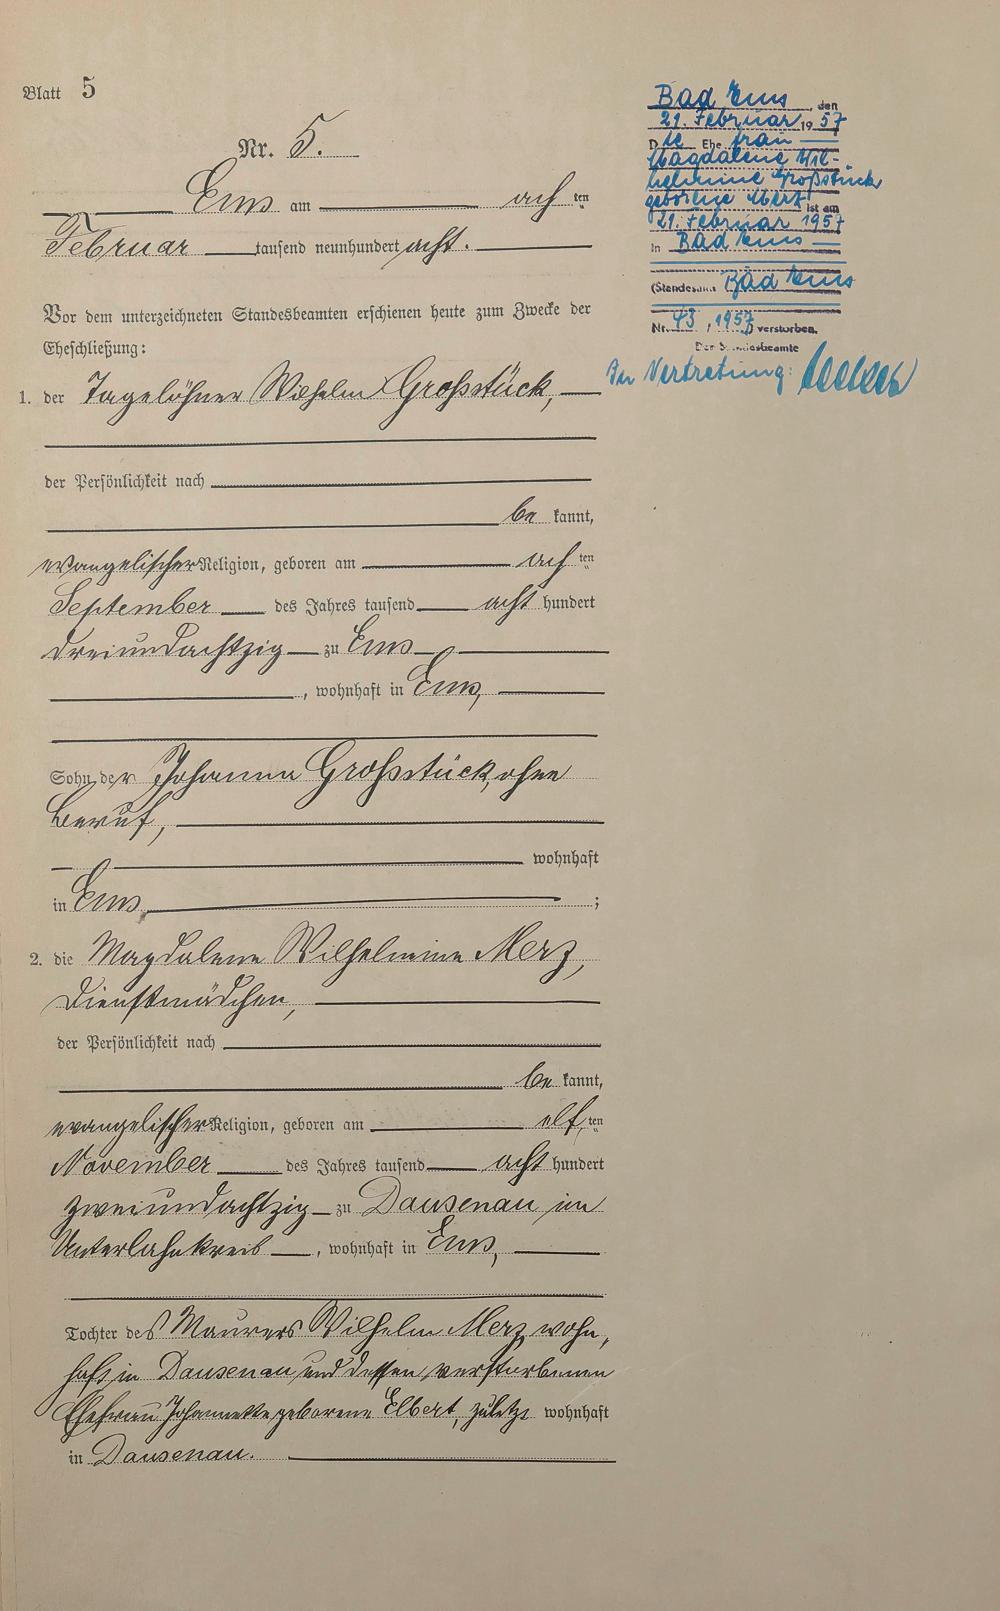 Blatt 5
Nr. 5.
Ems am achten
Februar tausend neunhundert acht.
Vor dem unterzeichneten Standesbeamten erschienen heute zum Zwecke der
Eheschließung:
1. der Tagelöhner Wilhelm Großstück,
der Persönlichkeit nach
be kannt,
evangelischer Religion, geboren am achten
September des Jahres tausend acht hundert
dreiundachtzig zu Ems
, wohnhaft in Ems,
Sohn der Johanna Großstück, ohne
Beruf,
wohnhaft
in Ems ;
2. die Magdalene Wilhelmine Merz,
Dienstmädchen,
der Persönlichkeit nach
be kannt,
evangelischer Religion, geboren am elften
November des Jahres tausend acht hundert
zweiundachtzig zu Dausenau im
Unterlahnkreis , wohnhaft in Ems,
Tochter des Maurers Wilhelm Merz, wohn-
haft in Dausenau und dessen verstorbenen
Ehefrau Johannette geborene Elbert, zuletzt wohnhaft
in Dausenau.
Bad Ems, den
21. Februar 1957
Die Ehefrau
Magdalene Wil-
helmine Großstück
geborene Merz ist am
21. Februar 1957
in Bad Ems
(Standesamt Bad Ems
Nr. 43, 1957 verstorben.
Der Standesbeamte
In Vertretung: